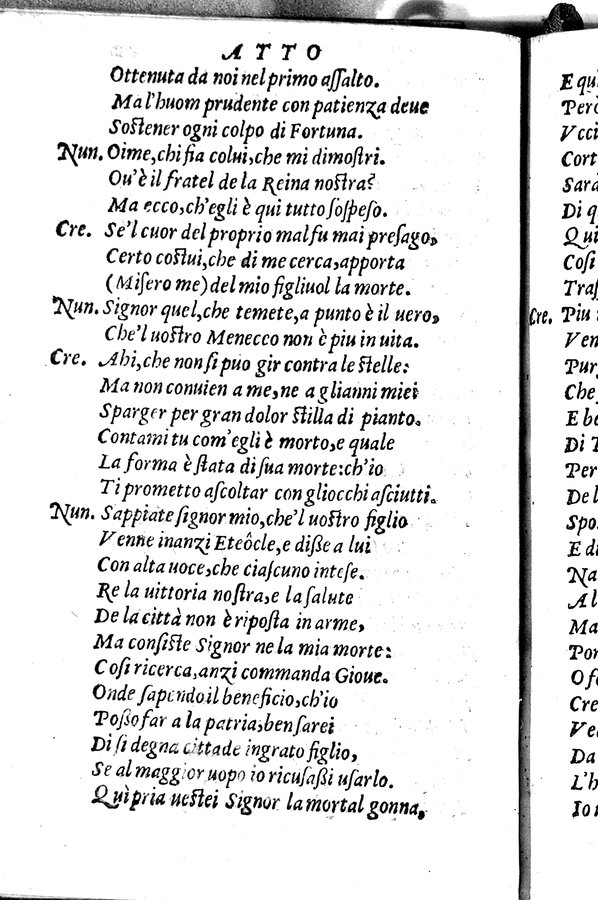 ATTO
Ottenuta da noi nel primo aſſalto.
Ma l'huom prudente con patienza deue
Soſtener ogni colpo di Fortuna.
Nun. Oime, chi fia colui, che mi dimoſtri.
Ou'è il fratel de la Reina noſtra?
Ma ecco, ch'egli è qui tutto ſoſpeſo.
Cre. Se'l cuor del proprio mal fu mai preſago,
Certo coſtui, che di me cerca, apporta
(Miſero me) del mio figliuol la morte.
Nun. Signor quel, che temete, a punto è il uero,
Che'l uoſtro Menecco non è piu in uita.
Cre. Ahi, che non ſi puo gir contra le ſtelle:
Ma non conuien a me, ne a gli anni miei
Sparger per gran dolor ſtilla di pianto.
Contami tu com'egli è morto, e quale
La forma è ſtata di ſua morte: ch'io
Ti prometto aſcoltar con gliocchi aſciutti.
Nun. Sappiate ſignor mio, che'l uoſtro figlio
Venne inanzi Eteôcle, e diße a lui
Con alta uoce, che ciaſcuno inteſe.
Re la uittoria noſtra, e la ſalute
De la città non è ripoſta in arme,
Ma conſiſte Signor ne la mia morte:
Coſi ricerca, anzi commanda Gioue.
Onde ſapendo il beneficio, ch'io
Poßo far a la patria, ben ſarei
Di ſi degna cittade ingrato figlio,
Se al maggior uopo io ricuſaßi uſarlo.
Quì pria ueſtei Signor la mortal gonna,
E qui
Però
Vcci
Cort
Sarà
Di q
Qui
Coſi
Traſ
Cre. Piu
Ven
Pur
Che
E be
Di T
Per
De l
Spo
E di
Na
Al
Ma
Por
Of
Cre
Ve
Da
L'h
Io